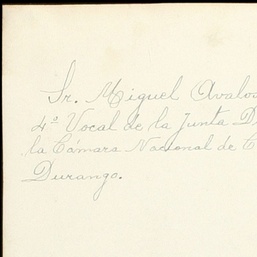 Sr. Miguel Avalos
4º Vocal de la Junta D
la Cámara Nacional de C
Durango.